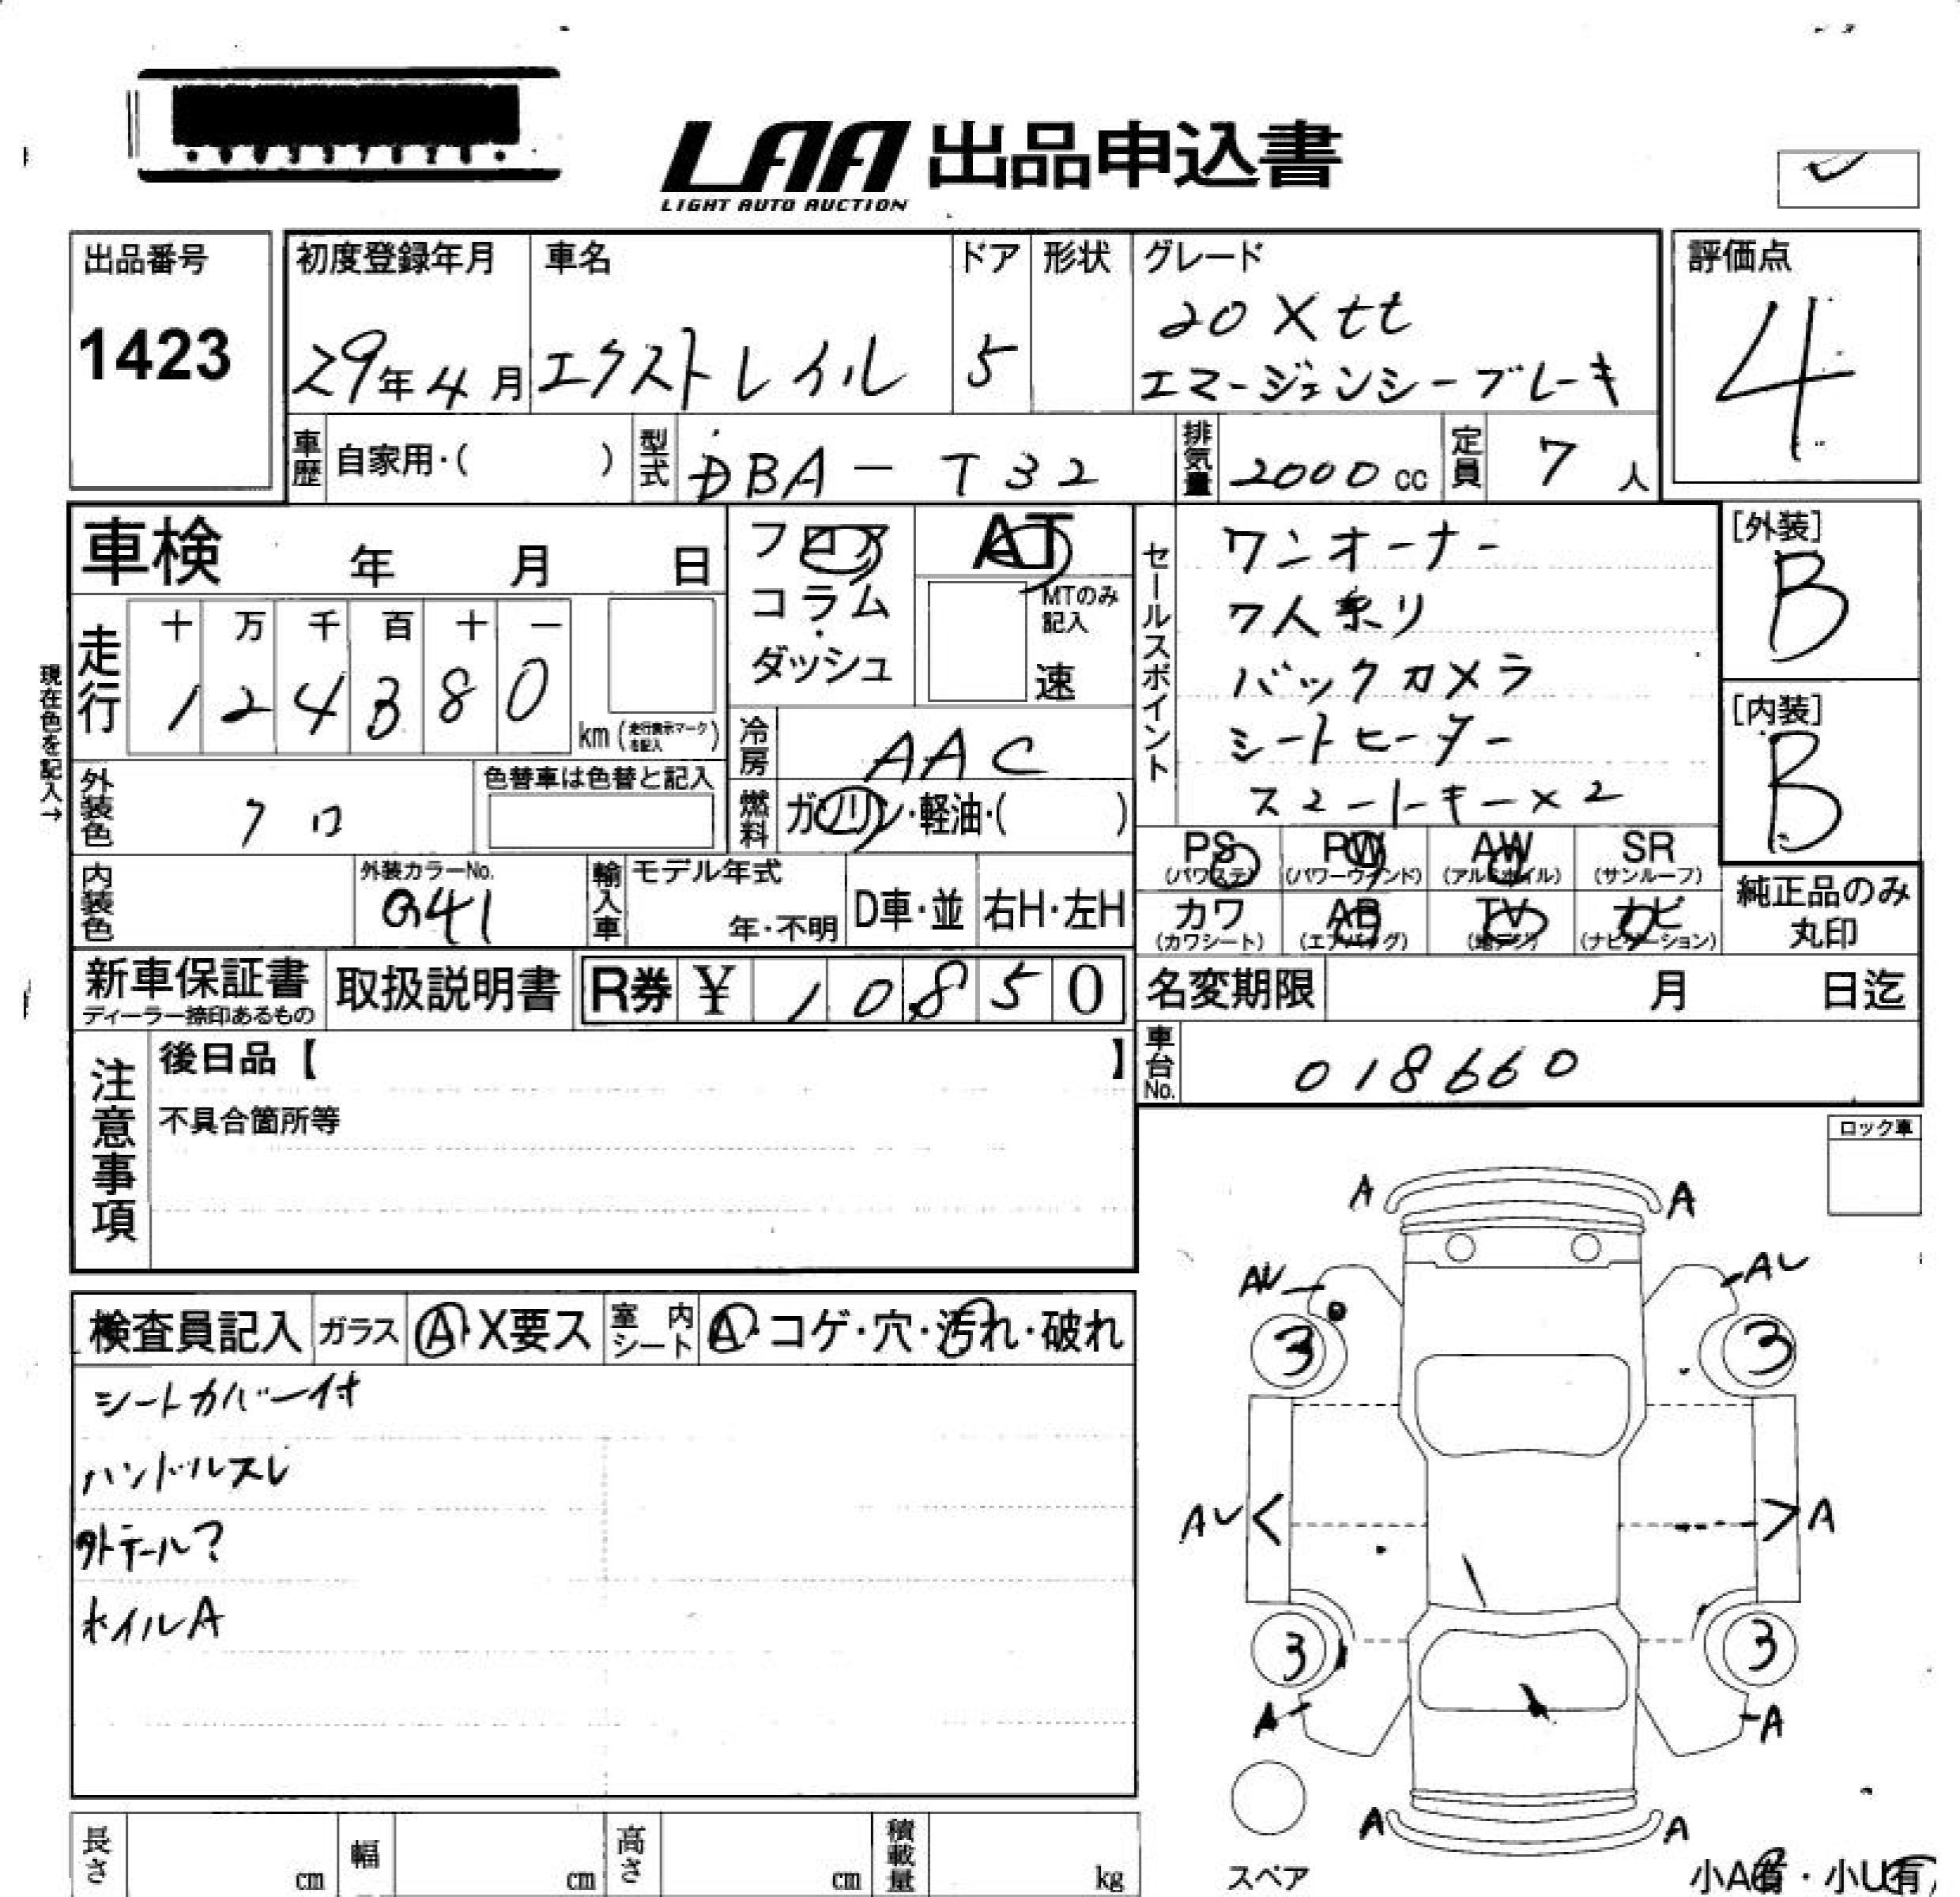 LAA 出品申込書
LIGHT AUTO AUCTION
出品番号
1423
初度登録年月
29年4月
車名
エクストレイル
ドア
5
形状
グレード
20Xtt
エマージェンシーブレーキ
評価点
4
車歴 自家用・( )
型式 DBA-T32
排気量 2000cc
定員 7人
車検 年 月 日
走行
十 万 千 百 十 一
1 2 4 3 8 0 km (走行表示マークを記入)
現在色を記入→
フロア
コラム
・
ダッシュ
AT
MTのみ記入
速
冷房 AAC
燃料 ガソリン・軽油・( )
セールスポイント
ワンオーナー
7人乗り
バックカメラ
シートヒーター
スマートキー×2
[外装]
B
[内装]
B
外装色 クロ
色替車は色替と記入
内装色
外装カラーNo.
G41
輸入車
モデル年式
年・不明
D車・並
右H・左H
PS (パワステ)
PW (パワーウインド)
AW (アルミホイル)
SR (サンルーフ)
カワ (カワシート)
AB (エアバッグ)
TV (地デジ)
ナビ (ナビゲーション)
純正品のみ
丸印
新車保証書
ディーラー捺印あるもの
取扱説明書
R券 ¥ 10850
名変期限 月 日迄
車台No. 018660
注意事項
後日品【 】
不具合箇所等
ロック車
検査員記入
ガラス A・X要ス
室内シート A・コゲ・穴・汚れ・破れ
シートカバー付
ハンドルスレ
外テール?
ホイルA
A A
AU AU
3 3
AU A
3 3
A A
A A
スペア
長さ cm
幅 cm
高さ cm
積載量 kg
小A有・小U有